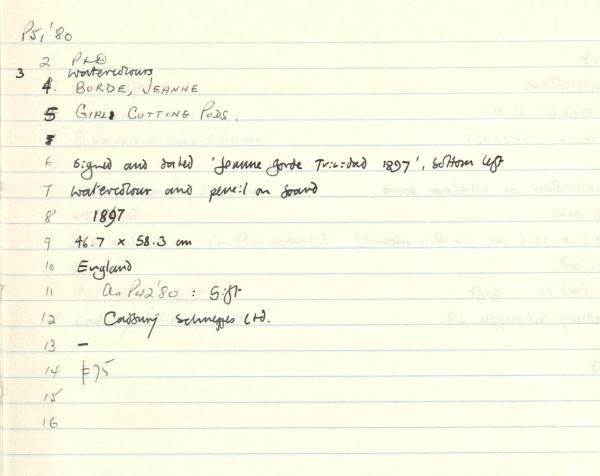 P51'80
2 P&D
3 watercolours
4. BORDE, JEANNE
5 GIRL CUTTING PODS.
6 signed and dated 'Jeanne Borde Trinidad 1897', bottom left
7 watercolour and pencil on board
8 1897
9 46.7 x 58.3 cm
10 England
11 as P42'80 : Gift
12 Cadbury Schweppes Ltd.
13 –
14 £75
15
16